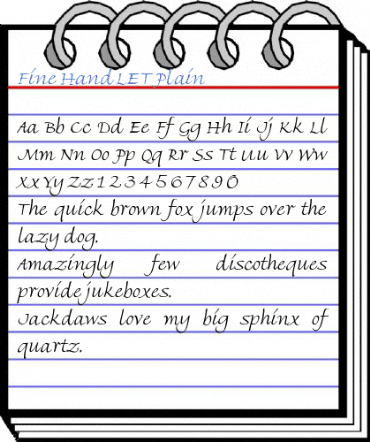 Fine Hand LET Plain
Aa Bb Cc Dd Ee Ff Gg Hh Ii Jj Kk Ll
Mm Nn Oo Pp Qq Rr Ss Tt Uu Vv Ww
Xx Yy Zz 1 2 3 4 5 6 7 8 9 0
The quick brown fox jumps over the
lazy dog.
Amazingly few discotheques
provide jukeboxes.
Jackdaws love my big sphinx of
quartz.